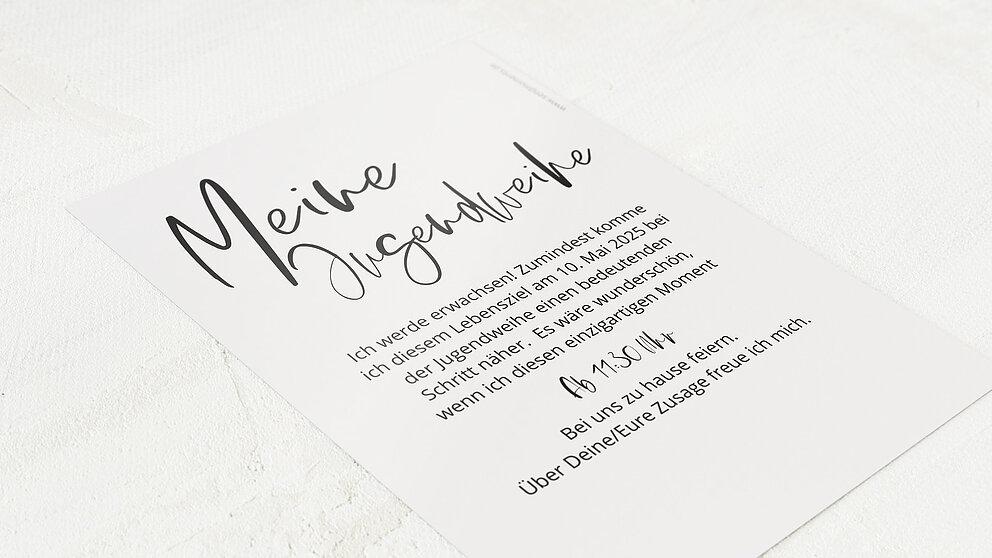 Meine
Jugendweihe
Ich werde erwachsen! Zumindest komme
ich diesem Lebensziel am 10. Mai 2025 bei
der Jugendweihe einen bedeutenden
Schritt näher. Es wäre wunderschön,
wenn ich diesen einzigartigen Moment
Ab 11:30 Uhr
Bei uns zu hause feiern.
Über Deine/Eure Zusage freue ich mich.